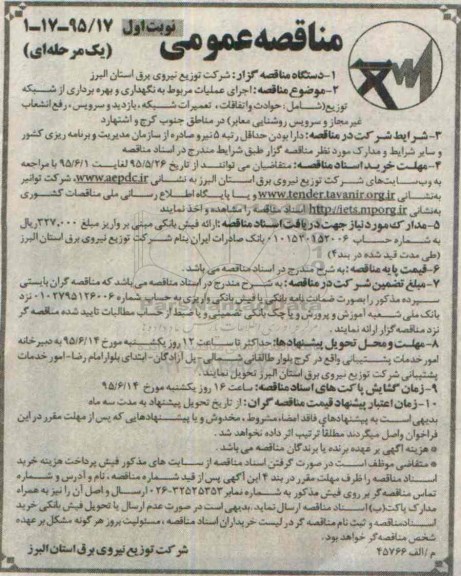 مناقصه عمومی
نوبت اول ۹۵/۱۷–۱۷–۱
(یک مرحله‌ای)
۱-دستگاه مناقصه گزار: شرکت توزیع نیروی برق استان البرز
۲-موضوع مناقصه: اجرای عملیات مربوط به نگهداری و بهره برداری از شبکه
توزیع(شامل: حوادث واتفاقات، تعمیرات شبکه، بازدید و سرویس، رفع انشعاب
غیرمجاز و سرویس روشنایی معابر) در مناطق جنوب کرج و اشتهارد
۳-شرایط شرکت در مناقصه: دارا بودن حداقل رتبه ۵ نیرو و صادره از سازمان مدیریت و برنامه ریزی کشور
و سایر شرایط و مدارک مورد نظر مناقصه گزار طبق شرایط مندرج در اسناد مناقصه
۴-مهلت خرید اسناد مناقصه: متقاضیان می توانند از تاریخ ۹۵/۵/۲۶ لغایت ۹۵/۶/۱ با مراجعه
به وب‌سایت‌های شرکت توزیع نیروی برق استان البرز به نشانی www.aepdc.ir، شرکت توانیر
به‌نشانی www.tender.tavanir.org.ir و یا پایگاه اطلاع رسانی ملی مناقصات کشوری
به‌نشانی http://iets.mporg.ir اسناد مناقصه را مشاهده و اخذ نمایند
۵-مدارک مورد نیاز جهت دریافت اسناد مناقصه: ارائه فیش بانکی مبنی بر واریز مبلغ ۳۲۷,۰۰۰ریال
به شماره حساب ۰۱۰۱۵۳۰۱۵۲۰۰۶ بانک صادرات ایران بنام شرکت توزیع نیروی برق استان البرز
(طی مدت قید شده در بند۴)
۶-قیمت پایه مناقصه: به شرح مندرج در اسناد مناقصه می باشد.
۷-مبلغ تضمین شرکت در مناقصه: به شرح مندرج در اسناد مناقصه می‌باشد که مناقصه گران بایستی
سپرده مذکور را بصورت ضمانت نامه بانکی یا فیش بانکی واریزی به حساب شماره ۰۱۰۲۷۹۵۱۲۶۰۰۶ نزد
بانک ملی شعبه آموزش و پرورش و یا چک بانکی تضمینی و یا ضبط از حساب مطالبات تایید شده مناقصه گر
نزد مناقصه گزار ارائه نمایند.
۸-مهلت و محل تحویل پیشنهادها: حداکثر تا ساعت ۱۲ روز یکشنبه مورخ ۹۵/۶/۱۴ به دبیرخانه
امور خدمات پشتیبانی واقع در کرج بلوار طالقانی شمالی-پل آزادگان-ابتدای بلوار امام رضا-امور خدمات
پشتیبانی شرکت توزیع نیروی برق استان البرز تحویل نمایند.
۹-زمان گشایش پاکت های اسناد مناقصه: ساعت ۱۶ روز یکشنبه مورخ ۹۵/۶/۱۴
۱۰-زمان اعتبار پیشنهاد قیمت مناقصه گران: از تاریخ تحویل پیشنهاد به مدت سه ماه
بدیهی است به پیشنهادهای فاقد امضاء، مشروط، مخدوش و یا پیشنهادهایی که پس از مهلت مقرر در این
فراخوان واصل میگردند مطلقا ترتیب اثر داده نخواهد شد.
* هزینه آگهی بر عهده برنده یا برندگان مناقصه می باشد.
* متقاضی موظف است در صورت گرفتن اسناد مناقصه از سایت های مذکور فیش پرداخت هزینه خرید
اسناد مناقصه را ظرف مهلت مقرر در بند ۴ این آگهی پس از قید شماره مناقصه، نام و آدرس و شماره
تماس مناقصه گر بر روی فیش مذکور به شماره نمابر ۳۲۵۲۵۳۵۳-۰۲۶ ارسال و اصل آن را نیز به همراه
مدارک پاکت(ب) اسناد مناقصه ارسال نماید. بدیهی است در صورت عدم ارسال یا تحویل فیش بانکی خرید
اسنادمناقصه و ثبت نام مناقصه گر در لیست خریداران اسناد مناقصه، مسئولیت بروز هر گونه مشکل بر عهده
شخص مناقصه گر خواهد بود.
م/الف ۴۵۷۶۶
شرکت توزیع نیروی برق استان البرز